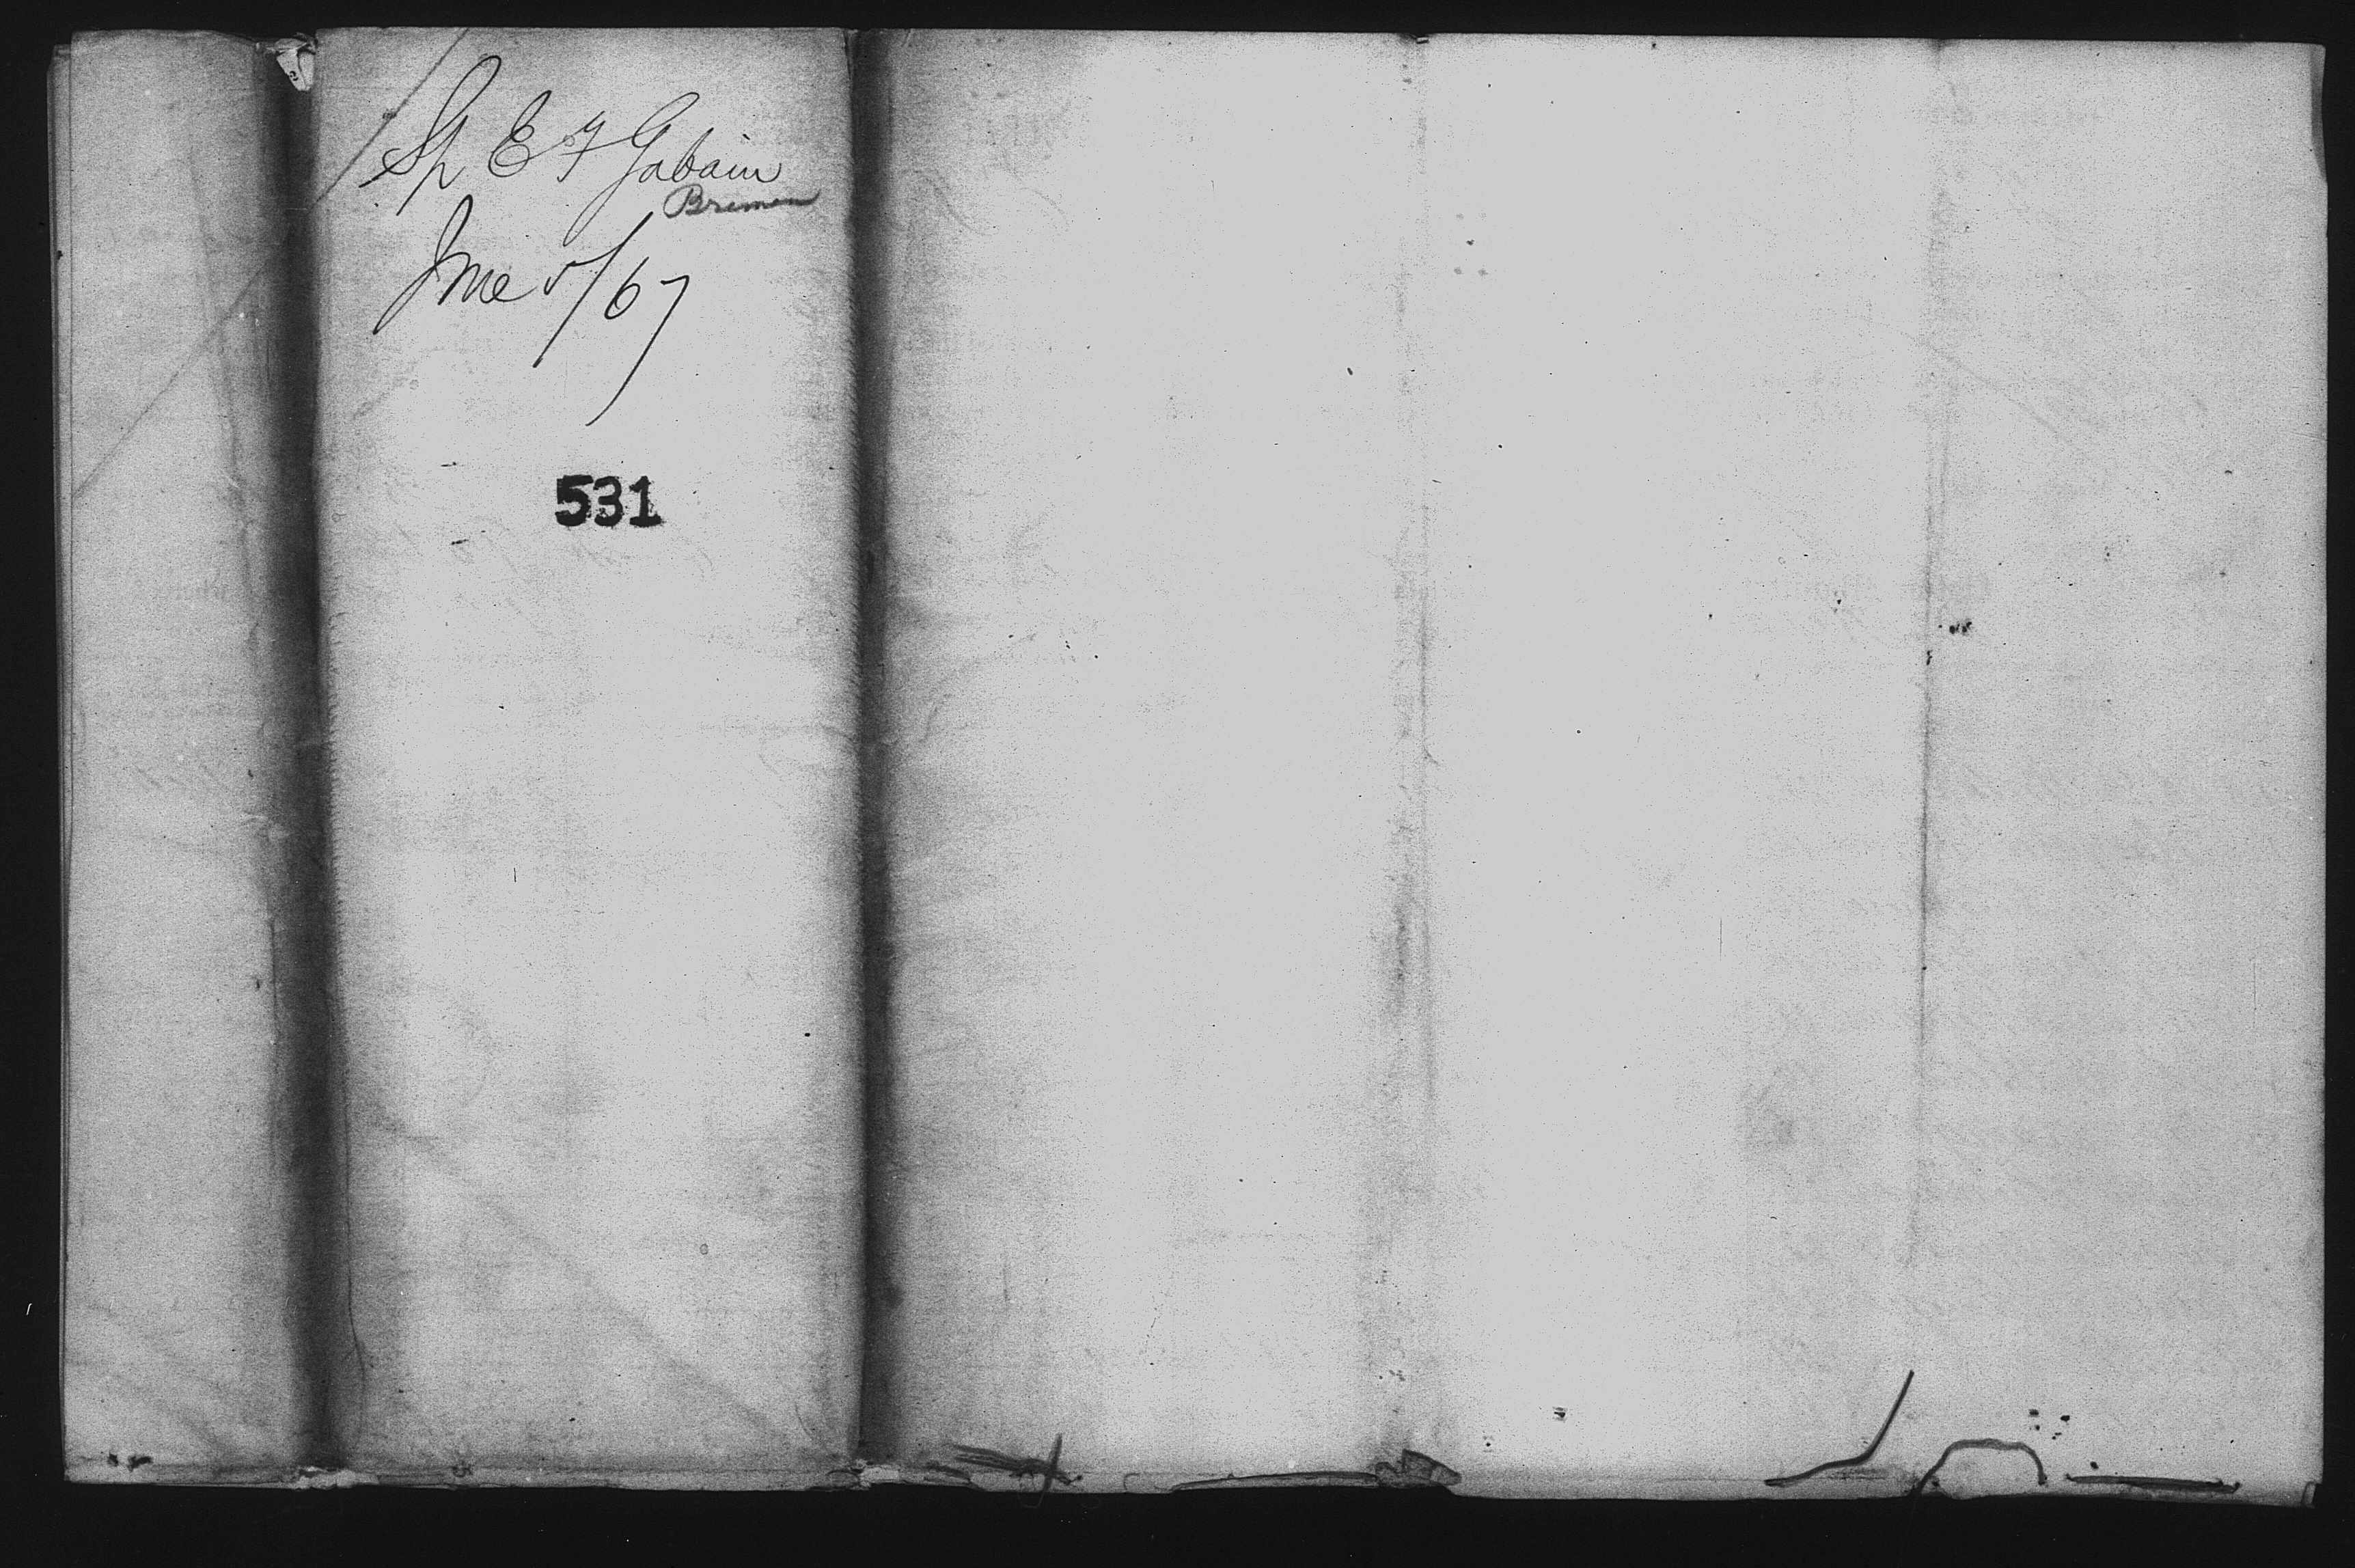 Sp E F Gabain
Bremen
June 5/67
531